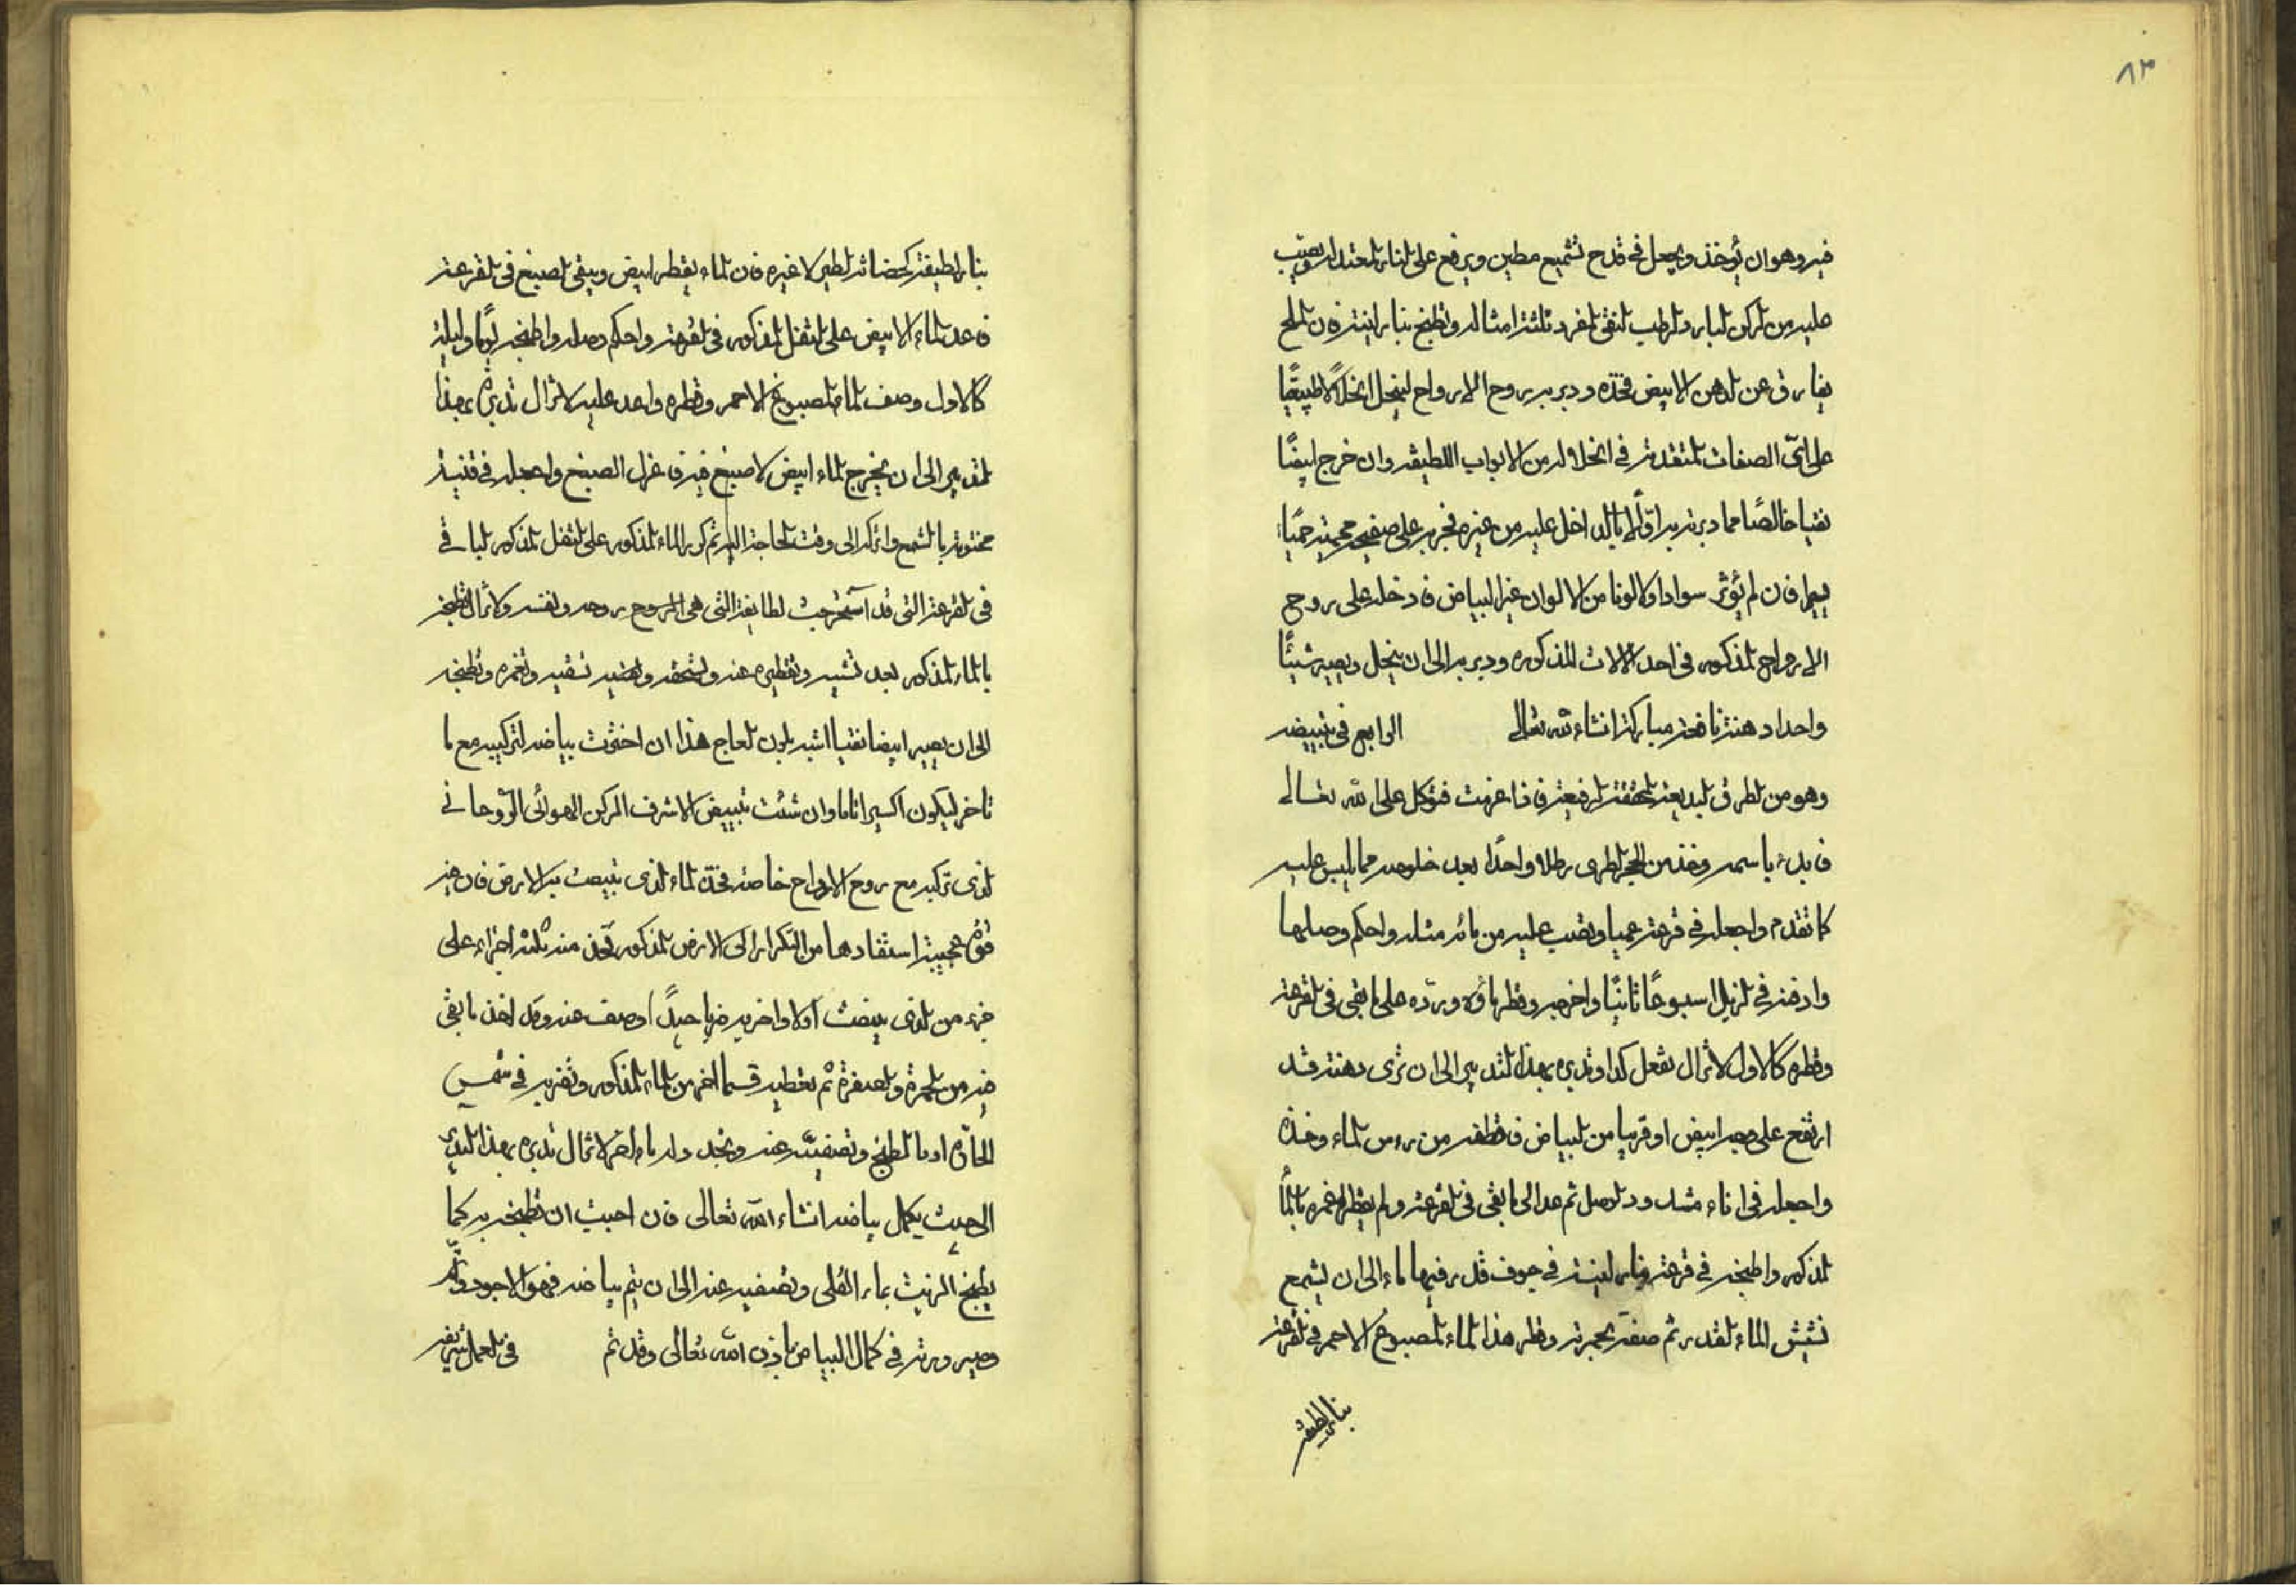 ٨٣
فيه وهو ان يؤخذ ويجعل في قدح تشميع مطين ويرفع على النار المعتدلة ويصب
عليه من الركن البارد الرطب النقي المفرد ثلثة امثاله وتطبخ بنار لينة فان الملح
يفارق عن الدهن الابيض فخذه ودبر به روح الارواح لينحل انحلالا طبيعيا
على اتى الصفات المتقدمة في انحلاله من الابواب اللطيفة وان خرج ابيضا
نقيا خالصا مما دبرته به اولا بالداخل عليه من غيره فجربه على صفيحة محمية حميا
فان لم يؤثر سوادا ولا لونا من الالوان غير البياض فادخله على روح
الارواح المذكور في احد الالات المذكوره ودبر به الى ان ينحل ويصير شيئا
واحدا دهنة نافعة مباركة انشاء الله تعالى الرابع في تبييضه
وهو من الطرق البديعة المحققة الرفيعة فاذا عزمت فتوكل على الله تعالى
فابدء باسمه وخذ من الحجر الطرى رطلا واحدا بعد خلوصه مما ليس عليه
كما تقدم واجعله في قرعة عميا وتصب عليه من مائه مثله واحكم وصلها
وادفنه في الزبل اسبوعا ثانيا واخرجه وقطر ماؤه ورده على ما بقى في القرعة
وقطره كالاول لا تزال تفعل كذا وتدبره بهذا التدبير الى ان ترى دهنة قد
ارتفع على وجه ابيض او قريبا من البياض فاقطفه من رءس الماء وخذه
واجعله في اناء مشدود الوصل ثم عد الى ما بقى في القرعة ولم يقطر اغمره بالماء
المذكور واطبخه في قرعة بنار لينة في جوف قدر فيها ماء الى ان يسمع
نشيش الماء القدر ثم صفه بحجرته وقطر هذا الماء المصبوغ الاحمر في القرعة
بنار لطيفة
بنار لطيفة كحضانة الطير لا غيره فان الماء يقطر ابيض ويبقى الصبغ في القرعة
فاعد الماء الابيض على الثفل المذكور في القرعة واحكم وصله واطبخه يوما وليلة
كالاول وصف الماء المصبوغ الاحمر وقطره واعد عليه لا تزال تدبره بهذا
التدبير الى ان يخرج الماء ابيض لا صبغ فيه فاعزل الصبغ واجعله في قنينة
مختومة بالشمع واتركه الى وقت الحاجة اليه ثم كرر الماء المذكور على الثفل المذكور الباقي
في القرعة التي قد استخرجت لطايفة التي هي الروح روحه ونفسه ولا تزال تطبخه
بالماء المذكور بعد تشبيه وتقطيره عنه وتسحقه وتهضيه تسقيه وتغمره وتطبخه
الى ان يصير ابيضا نقيا اشبه بلون العاج هذا ان اخترت بياضه لتركيبه مع ما
تاخر ليكون اكسيرا تاما وان شئت تبييض الاشرف الركن الهوائي الروحاني
الذي تركبه مع روح الارواح خاصة فخذ الماء الذي تبيضت به الارض فان فيه
قوة عجيبة استفادها من التكرار الى الارض المذكور تاخذ منه ثلثة اجزاء على
جزء من الذي بيضت اولا واخر به ضربا جيدا وصف عنه وقد اخذ ما بقى
فيه من الحمرة والصفرة ثم تعطيه قسما اخر من الماء المذكور وتضربه في شمس
الحارة او بالطبخ وتصفيته عنه وتجدد له ماء اخر لا تزال تدبره بهذا التدبير
الى حيث يكمل بياضه انشاء الله تعالى فان احببت ان تطبخه به كما
يطبخ الزيت بماء القلى وتصفيه عنه الى ان يتم بياضه فهو الاجود
وصيرورته في كمال البياض باذن الله تعالى وقد تم في العمل شريفة